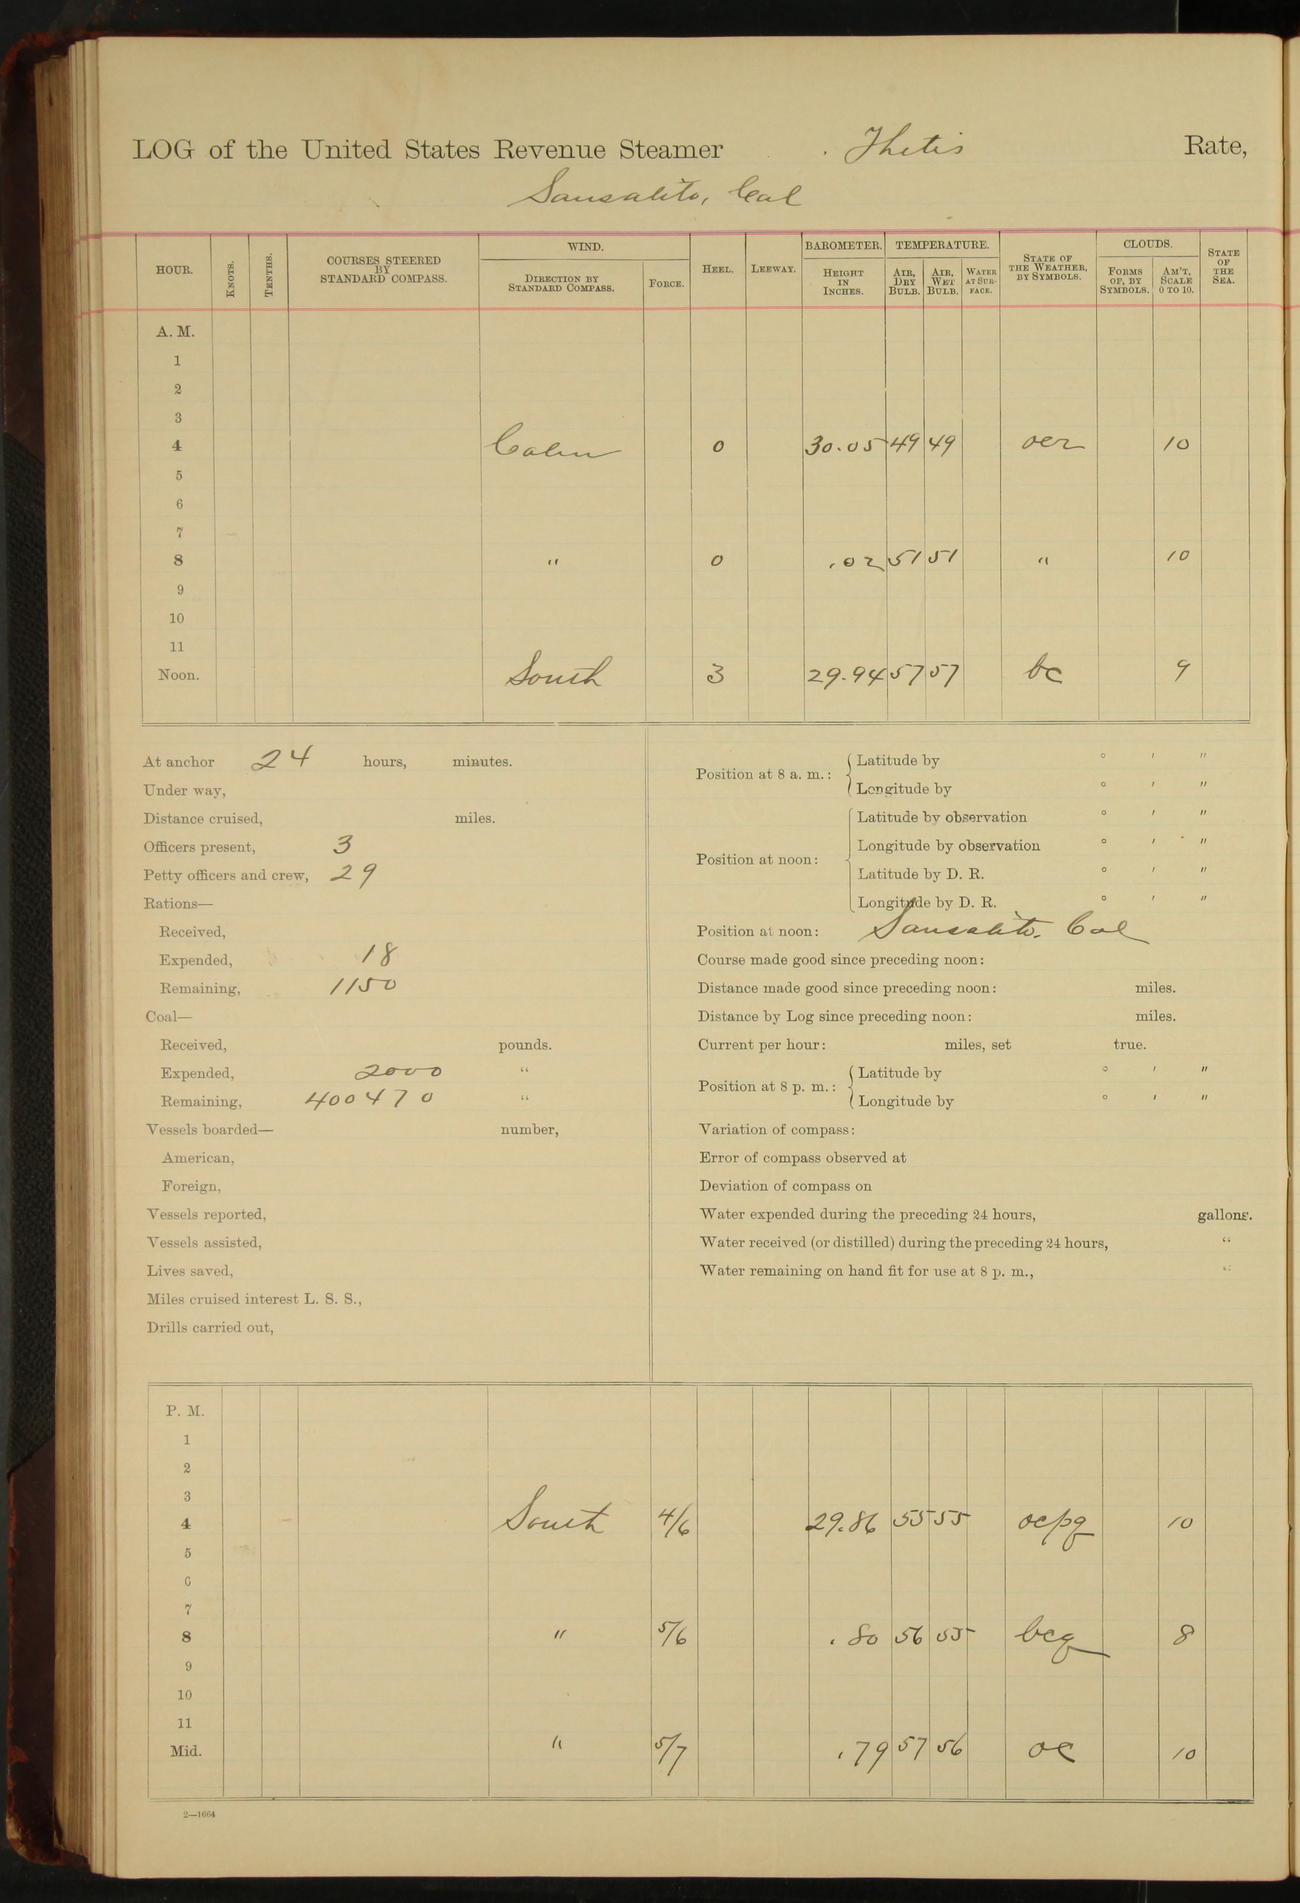 LOG of the United States Revenue Steamer Thetis Rate,
Sausalito, Cal
HOUR. KNOTS. TENTHS. COURSES STEERED BY STANDARD COMPASS. WIND. DIRECTION BY STANDARD COMPASS. FORCE. HEEL. LEEWAY. BAROMETER. HEIGHT IN INCHES. TEMPERATURE. AIR, DRY BULB. AIR, WET BULB. WATER AT SURFACE. STATE OF THE WEATHER, BY SYMBOLS. CLOUDS. FORMS OF, BY SYMBOLS. AM'T, SCALE 0 TO 10. STATE OF THE SEA.
A. M.
1
2
3
4 Calm 0 30.05 49 49 ocr 10
5
6
7
8 " 0 .02 51 51 " 10
9
10
11
Noon. South 3 29.94 57 57 bc 9
At anchor 24 hours, minutes.
Under way,
Distance cruised, miles.
Officers present, 3
Petty officers and crew, 29
Rations—
Received,
Expended, 18
Remaining, 1150
Coal—
Received, pounds.
Expended, 2000 "
Remaining, 400470 "
Vessels boarded— number,
American,
Foreign,
Vessels reported,
Vessels assisted,
Lives saved,
Miles cruised interest L. S. S.,
Drills carried out,
Position at 8 a. m.: Latitude by ° ′ ″
Longitude by ° ′ ″
Position at noon: Latitude by observation ° ′ ″
Longitude by observation ° ′ ″
Latitude by D. R. ° ′ ″
Longitude by D. R. ° ′ ″
Position at noon: Sausalito. Cal
Course made good since preceding noon:
Distance made good since preceding noon: miles.
Distance by Log since preceding noon: miles.
Current per hour: miles, set true.
Position at 8 p. m.: Latitude by ° ′ ″
Longitude by ° ′ ″
Variation of compass:
Error of compass observed at
Deviation of compass on
Water expended during the preceding 24 hours, gallons.
Water received (or distilled) during the preceding 24 hours, "
Water remaining on hand fit for use at 8 p. m., "
P. M.
1
2
3
4 South 4/6 29.86 55 55 ocpq 10
5
6
7
8 " 5/6 .80 56 55 bcq 8
9
10
11
Mid. " 5/7 .79 57 56 oc 10
2—1664